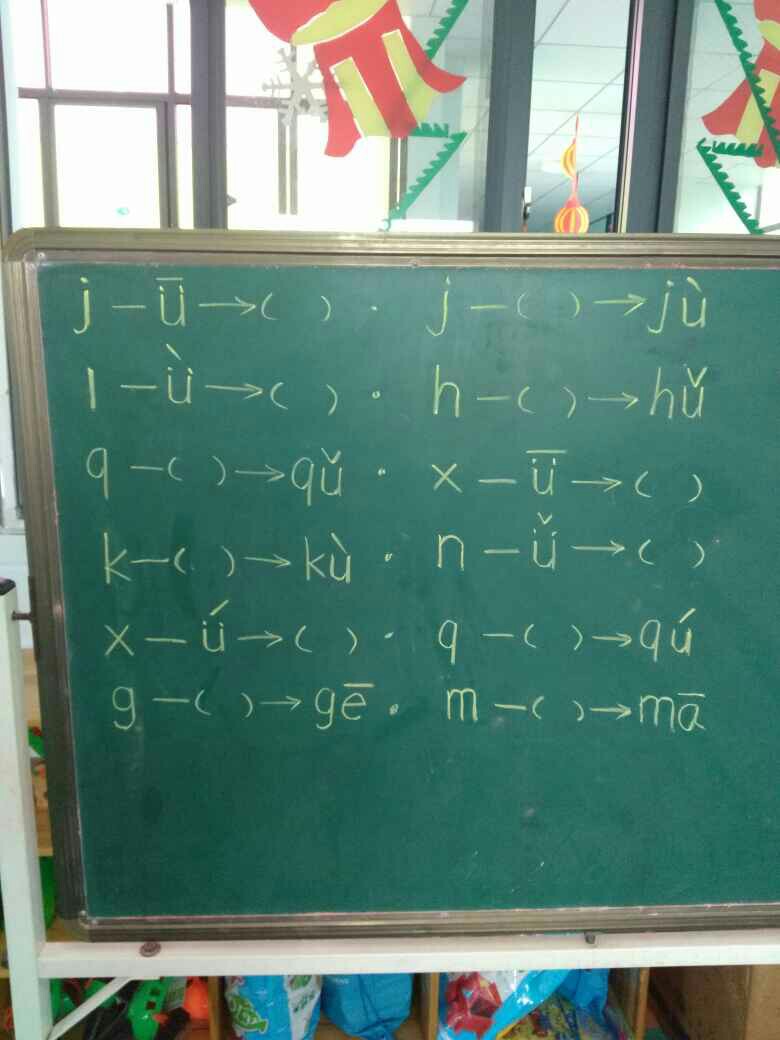 j — ǖ → ( ) · j — ( ) → jù
l — ǜ → ( ) · h — ( ) → hǔ
q — ( ) → qǔ · x — ǖ → ( )
k — ( ) → kù · n — ǚ → ( )
x — ǘ → ( ) · q — ( ) → qú
g — ( ) → gē · m — ( ) → mā